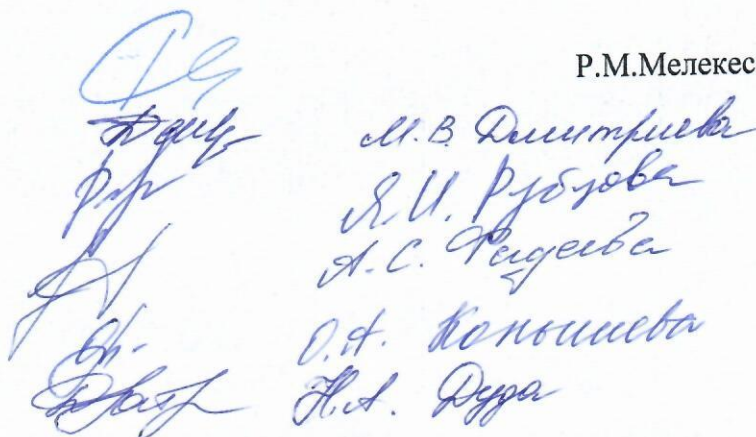 Р.М.Мелекес
М.В. Дмитриева
Я.И. Рубцова
А.С. Фадеева
О.А. Конышева
Н.А. Дуда